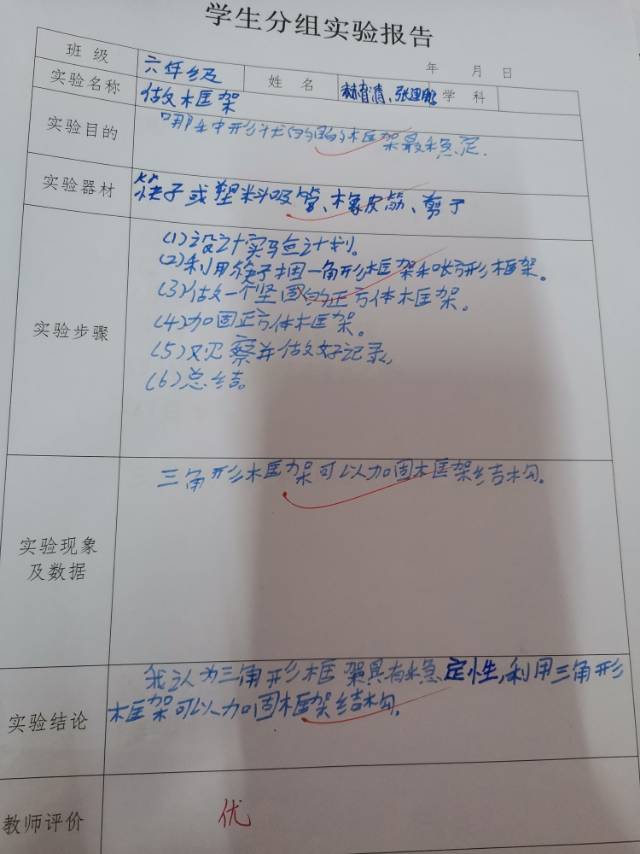 学生分组实验报告
年 月 日
班级 六年级 姓名 张迎鹏 学科
实验名称 做框架
实验目的 哪种形状的框架最稳定.
实验器材 筷子或塑料吸管、橡皮筋、剪子
实验步骤
(1)设计实验计划。
(2)利用筷子捆一角形框架和长方形框架。
(3)做一个坚固的正方体框架。
(4)加固正方体框架。
(5)观察并做好记录,
(6)总结。
实验现象及数据
三角形框架可以加固框架结构.
实验结论
我认为三角形框架具有稳定性,利用三角形
框架可以加固框架结构.
教师评价 优